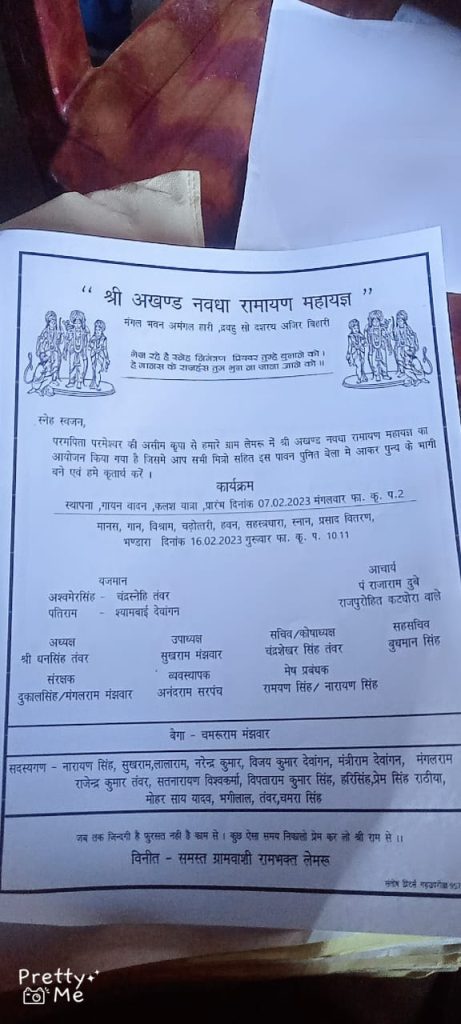 “ श्री अखण्ड नवधा रामायण महायज्ञ ”
मंगल भवन अमंगल हारी ,द्रवहु सो दशरथ अजिर बिहारी
भेज रहे है स्नेह निमंत्रण प्रियवर तुम्हे बुलाने को।
हे मानस के राजहंस तुम भुल ना जाना आने को॥
स्नेह स्वजन,
परमपिता परमेश्वर की असीम कृपा से हमारे ग्राम लेमरू में श्री अखण्ड नवधा रामायण महायज्ञ का
आयोजन किया गया है जिसमे आप सभी मित्रो सहित इस पावन पुनित बेला मे आकर पुन्य के भागी
बने एवं हमे कृतार्थ करें ।
कार्यक्रम
स्थापना ,गायन वादन ,कलश यात्रा ,प्रारंभ दिनांक 07.02.2023 मंगलवार फा. कृ. प.2
मानस, गान, विश्राम, चढ़ोत्तरी, हवन, सहस्त्रधारा, स्नान, प्रसाद वितरण,
भण्डारा दिनांक 16.02.2023 गुरूवार फा. कृ. प. 10.11
यजमान
अश्वमेरसिंह - चंद्रस्नेहि तंवर
पतिराम - श्यामबाई देवांगन
आचार्य
पं राजाराम दुबे
राजपुरोहित कटघोरा वाले
अध्यक्ष उपाध्यक्ष सचिव/कोषाध्यक्ष सहसचिव
श्री धनसिंह तंवर सुखराम मंझवार चंद्रशेखर सिंह तंवर बुधमान सिंह
संरक्षक व्यवस्थापक मेष प्रबंधक
दुकालसिंह/मंगलराम मंझवार अनंदराम सरपंच रामायण सिंह/ नारायण सिंह
बेगा - चमरूराम मंझवार
सदस्यगण - नारायण सिंह, सुखराम,लालाराम, नरेन्द्र कुमार, विजय कुमार देवांगन, मंत्रीराम देवांगन, मंगलराम
राजेन्द्र कुमार तंवर, सतनारायण विश्वकर्मा, दिपताराम कुमार सिंह, हरिसिंह,प्रेम सिंह राठीया,
मोहर साय यादव, भगीलाल, तंवर,चमरा सिंह
जब तक जिन्दगी है फुरसत नही है काम से । कुछ ऐसा समय निकालो प्रेम कर लो श्री राम से ।।
विनीत - समस्त ग्रामवाशी रामभक्त लेमरू
संतोष प्रिंटर्स
Pretty
Me